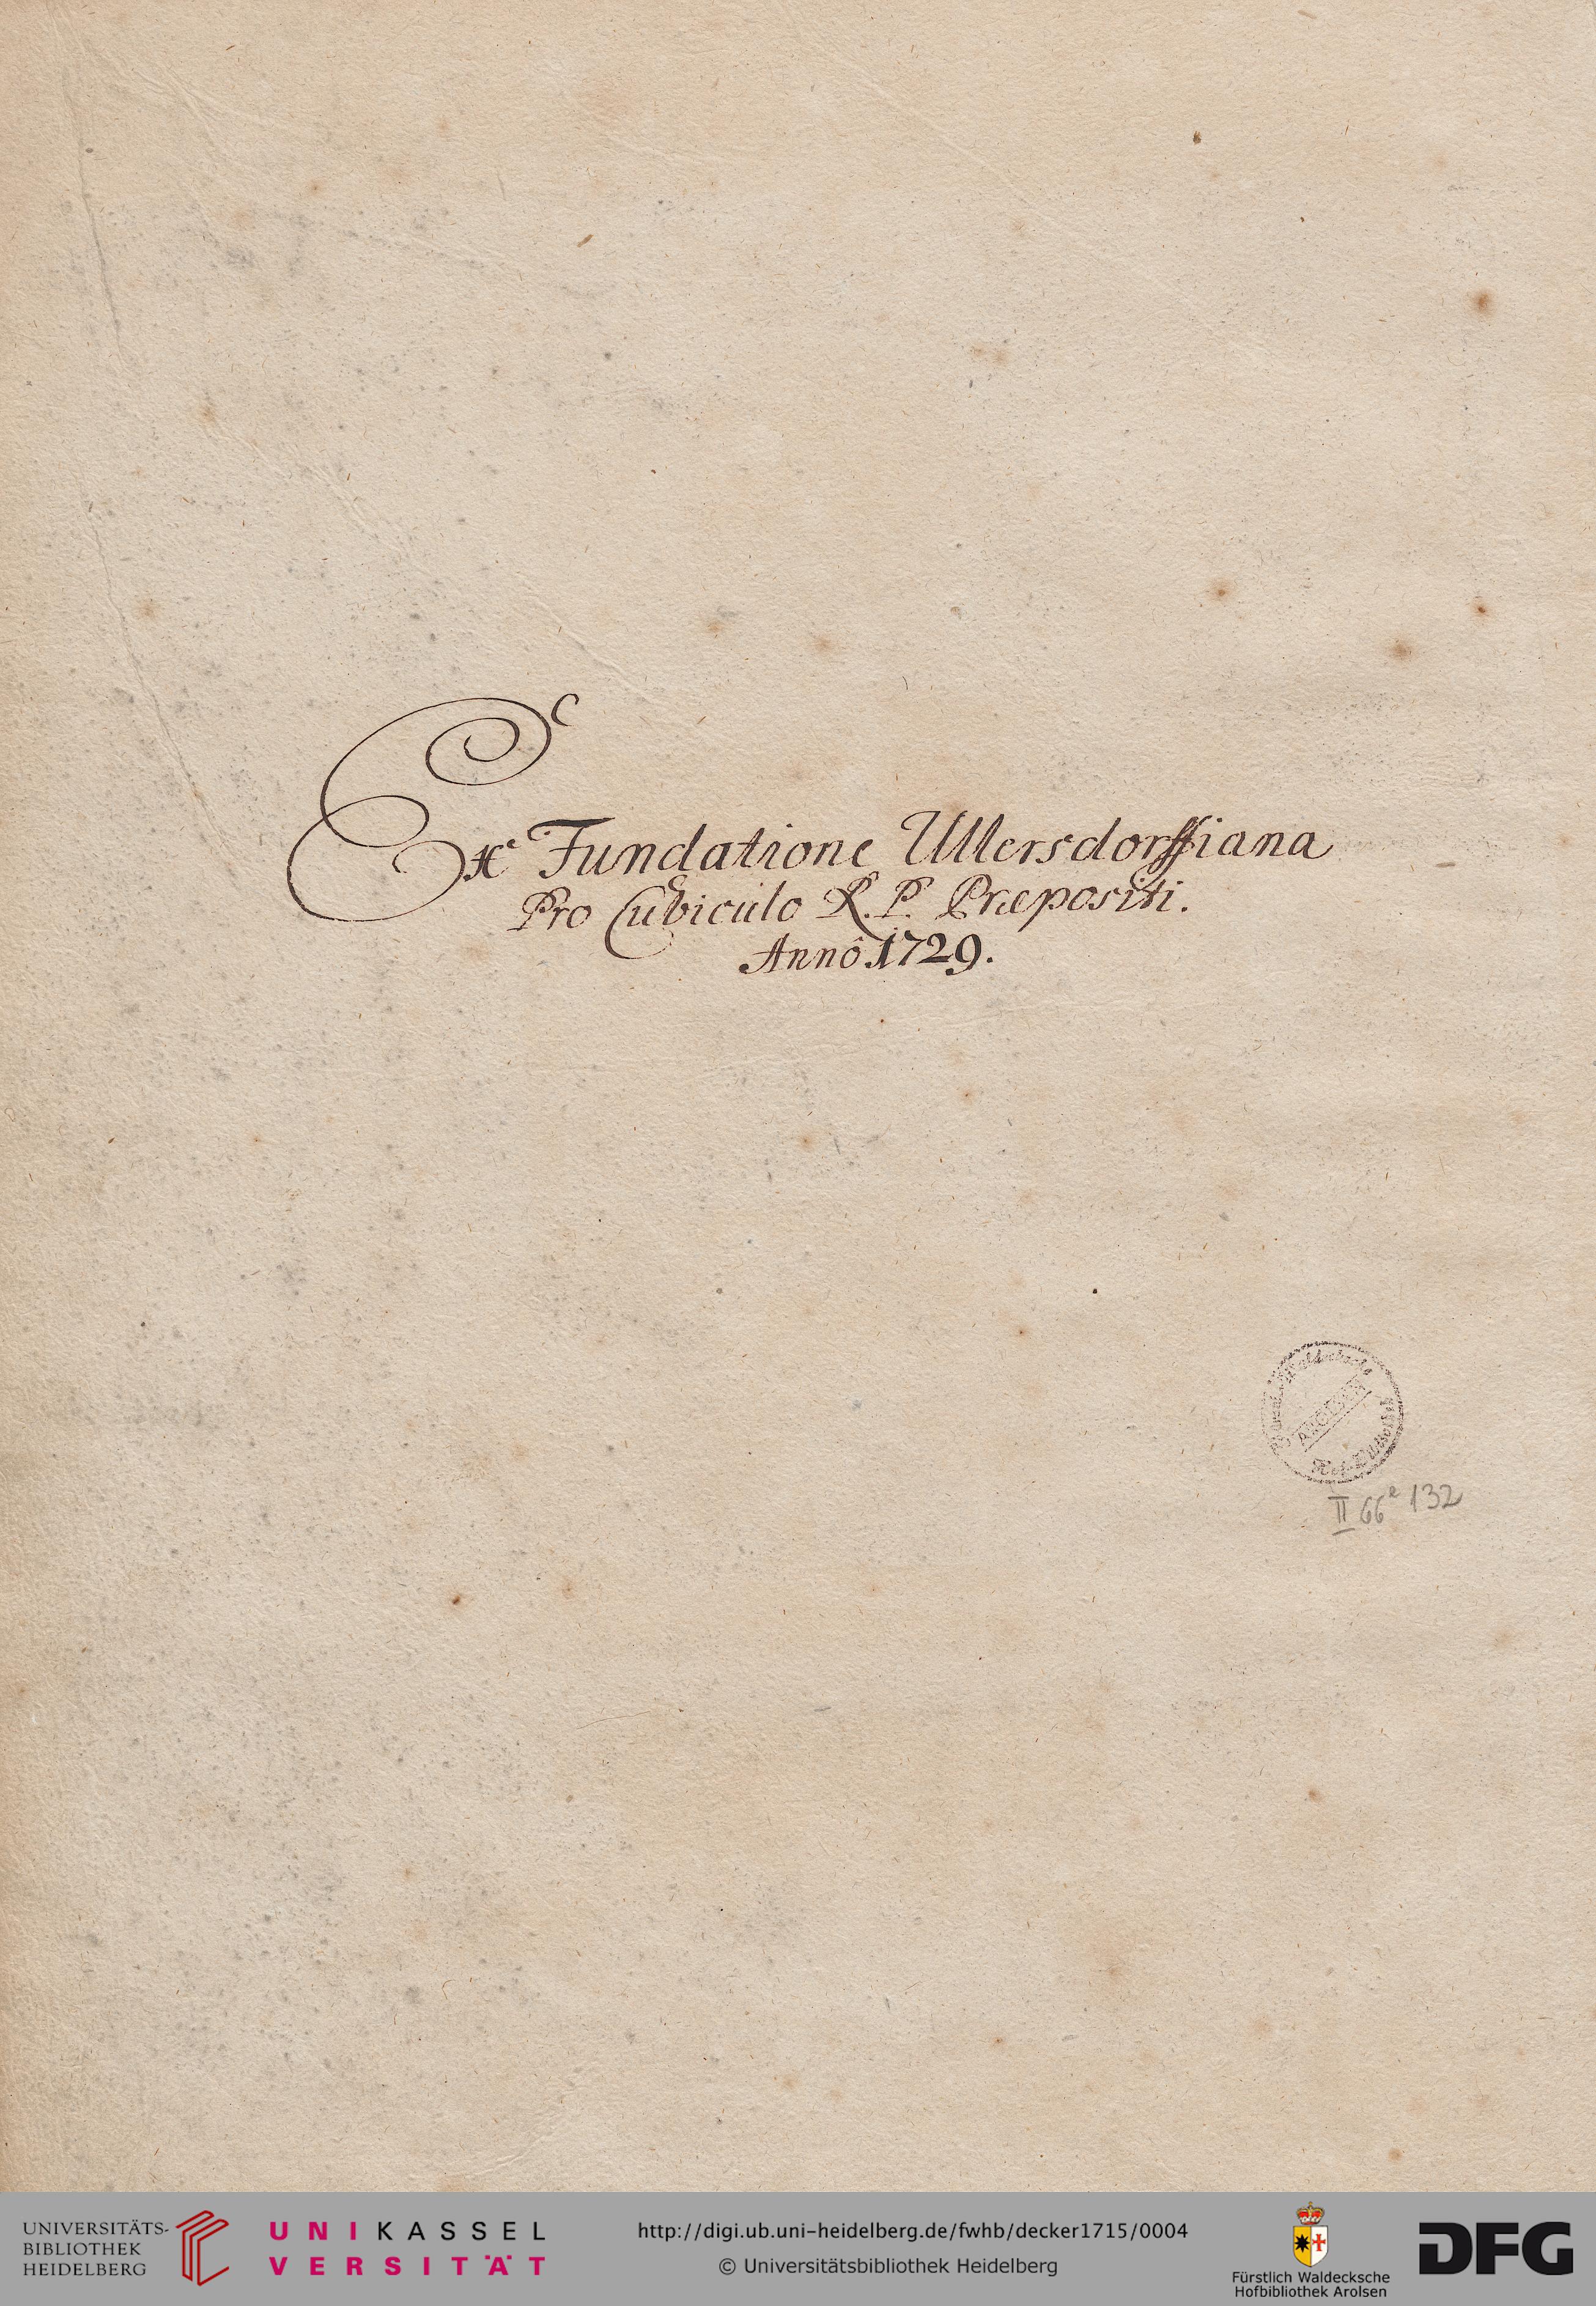 Ex Fundatione Ullersdorffiana
Pro Cubiculo R. P. Præpositi.
Annô 1729.
AROLSEN
II 66e 132
UNIVERSITÄTS-
BIBLIOTHEK
HEIDELBERG
UNIKASSEL
VERSITÄT
http://digi.ub.uni-heidelberg.de/fwhb/decker1715/0004
© Universitätsbibliothek Heidelberg
Fürstlich Waldecksche
Hofbibliothek Arolsen
DFG